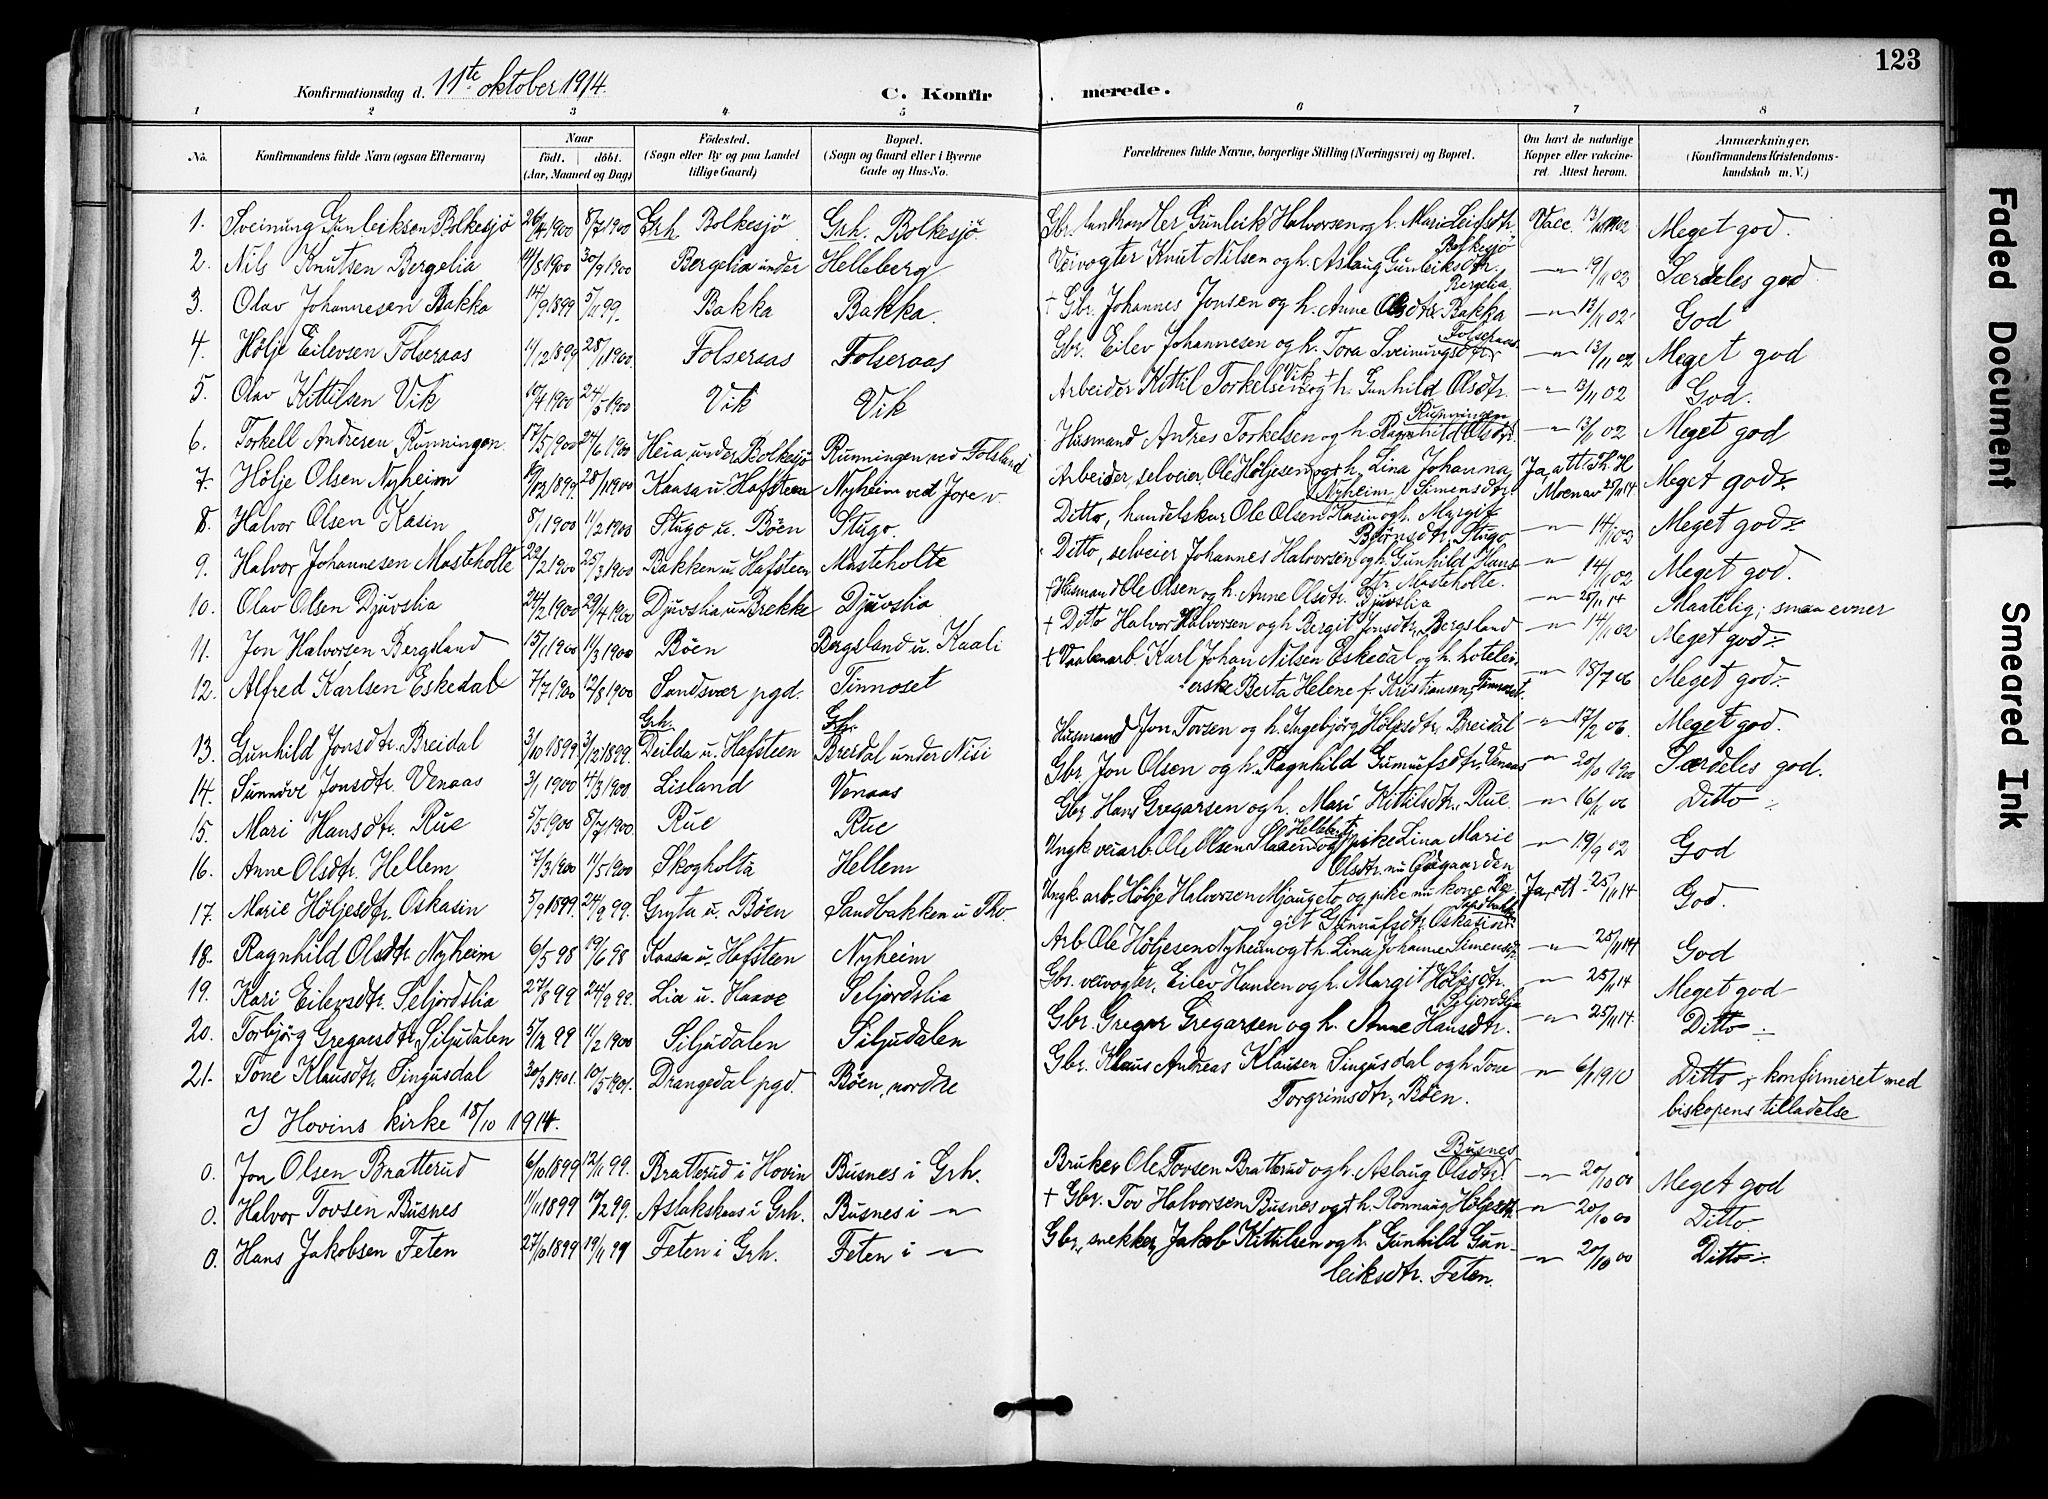 123
Konfirmationsdag d. 11te oktober 1914.
C. Konfirmerede.
1 2 3 4 5 6 7 8
No. Konfirmandens fulde Navn (ogsaa Efternavn) Naar født. døbt. (Aar, Maaned og Dag) Födested. (Sogn eller By og paa Landet tillige Gaard) Bopæl. (Sogn og Gaard eller i Byerne Gade og Hus-No. Forældrenes fulde Navne, borgerlige Stilling (Næringsvei) og Bopæl. Om havt de naturlige Kopper eller vaccineret. Attest herom. Anmærkninger, (Konfirmandens Kristendomskundskab m. V.)
1. Sveinung Gunleiksen Bolkesjö 8/7 1900 Grh. Bolkesjö Grh. Bolkesjö. Gbr. landhandler Gunleik Halvorsen og h. Mari Leifsdtr. Bolkesjö Vacc. Meget god.
2. Nils Knutsen Bergelia 30/9 1900 Bergelia under Helleberg Veivogter Knut Nilsen og h. Aslaug Gunleiksdtr. Bergelia — 19/11 03 Særdeles god
3. Olav Johannesen Bakka 14/9 1899 5/11 99. Bakka Bakka. + Gbr. Johannes Jonsen og h. Anne Olsdtr. Bakka — 13/11 02 God
4. Hølje Eilevsen Folseraas 11/12 1899 28/1 1900. Folseraas Folseraas Gbr. Eilev Johannesen og h. Tora Sveinungsdtr. Folseraas — 13/11 02 Meget god
5. Olav Kittilsen Vik 24/5 1900 Vik Vik Arbeider Kittil Torkelsen Vik og h. Gunhild Olsdtr. — 13/11 02 God.
6. Torkell Andresen Runningen. 17/5 1900 24/6 1900 Heia under Bolkesjö Runningen ved Folsland Husmand Andres Torkelsen og h. Ragnhild Olsdtr. Runningen — 13/11 02 Meget god
7. Hölje Olsen Nyheim 28/1 1900 Kaasa u. Hafsteen Nyheim ved Jore v. Arbeider, selveier, Ole Höljesen og h. Lina Johanna Simensdtr. Nyheim Ja, att. Th. H. Moen av 25/11 14 Meget god
8. Halvor Olsen Kasin 8/1 1900 11/2 1900 Stugo u. Böen Stugo. Ditto, handelskar Ole Olsen Kasin og h. Margit Björnsdtr. Stugo — 14/11 02 Meget god
9. Halvor Johannesen Masteholte 22/2 1900 25/3 1900 Bakken u. Hafsteen Masteholte Ditto, selveier Johannes Halvorsen og h. Gunhild Hansdtr. Masteholte. — 14/11 02 Meget god.
10. Olav Olsen Djuvslia 24/2 1900 29/4 1900 Djuvslia u. Brekke Djuvslia + Husmand Ole Olsen og h. Anne Olsdtr. Djuvslia — 25/11 14 Maatelig; smaa evner
11. Jon Halvorsen Bergsland 15/1 1900 11/3 1900 Böen Bergsland u. Kaali + Ditto Halvor Halvorsen og h. Bergit Jonsdtr. Bergsland — 14/11 02 Meget god
12. Alfred Karlsen Eskedal 7/7 1900 12/8 1900 Sandsvær pgd. Tinnoset + Vaabenarb. Karl Johan Nilsen Eskedal og h. hoteleierske Berta Helene f. Kristiansen, Tinnoset. — 18/7 06 Meget god
13. Gunhild Jonsdtr. Breidal 3/10 1899 3/12 1899. Grh. Deilda u. Hafsteen Grh. Breidal under Nisi Husmand Jon Tovsen og h. Ingebjörg Höljesdtr. Breidal — 17/2 06. Meget god.
14. Sunnöve Jonsdtr. Venaas 3/1 1900 4/3 1900 Lisland Venaas Gbr. Jon Olsen og h. Ragnhild Gunnufsdtr. Venaas — Særdeles god.
15. Mari Hansdtr. Rue 5/5 1900 8/7 1900. Rue Rue Gbr. Hans Gregarsen og h. Mari Kittilsdtr. Rue — 16/11 06 Ditto
16. Anne Olsdtr. Hellem 7/3 1900 11/5 1900 Skogholta Hellem Ungk. veiarb. Ole Olsen og pike Lina Marie Olsdtr. nu Ödegaarden — 19/9 02 God
17. Marie Höljesdtr. Oskasin 5/9 1899. 24/9 99. Gryta u. Böen Sandbakken u. Tho. Ungk. arb. Hölje Halvorsen Mjaugeto og pike nu kone Bergit Gunnufsdtr. Oskasin Ja, att. 25/11 14 God.
18. Ragnhild Olsdtr. Nyheim 6/5 98 19/6 98 Kaasa u. Hafsteen Nyheim Arb. Ole Höljesen Nyheim og h. Lina Johanne Simensdtr. — 25/11 14 God
19. Kari Eilevsdtr. Seljordslia 27/8 99 24/9 99. Lia u. Haave Seljordslia Gbr. veivogter, Eilev Hansen og h. Margit Höljesdtr. Seljordslia — 25/11 14 Meget god
20. Torbjörg Gregarsdtr. Siljudalen 5/12 99 11/2 1900 Siljudalen Siljudalen Gbr. Gregar Gregarsen og h. Anne Hansdtr. — 25/11 14. Ditto
21. Tone Klausdtr. Singusdal 30/3 1901. 10/5 1901. Drangedal pgd. Böen, nordre Gbr. Klaus Andreas Klausen Singusdal og h. Tone Torgrimsdtr., Böen. — 6/1 1910 Ditto, konfirmeret med biskopens tilladelse
I Hovins kirke 18/10 1914.
0. Jon Olsen Bratterud 6/10 1899 12/11 99. Bratterud i Hovin Busnes i Grh. Bruker Ole Tovsen Bratterud og h. Aslaug Olsdtr. Busnes — 20/10 00 Meget god
0. Halvor Tovsen Busnes 11/11 1899 Aslakskaas i Grh. Busnes i — + Gbr. Tov Halvorsen Busnes og h. Rönnaug Höljesdtr. — 20/10 00 Ditto
0. Hans Jakobsen Feten 27/10 1899 19/11 99 Feten i Grh. Feten i — Gbr., snekker, Jakob Kittilsen og h. Gunhild Gunleiksdtr. Feten. — 20/10 00 Ditto
Faded Document
Smeared Ink